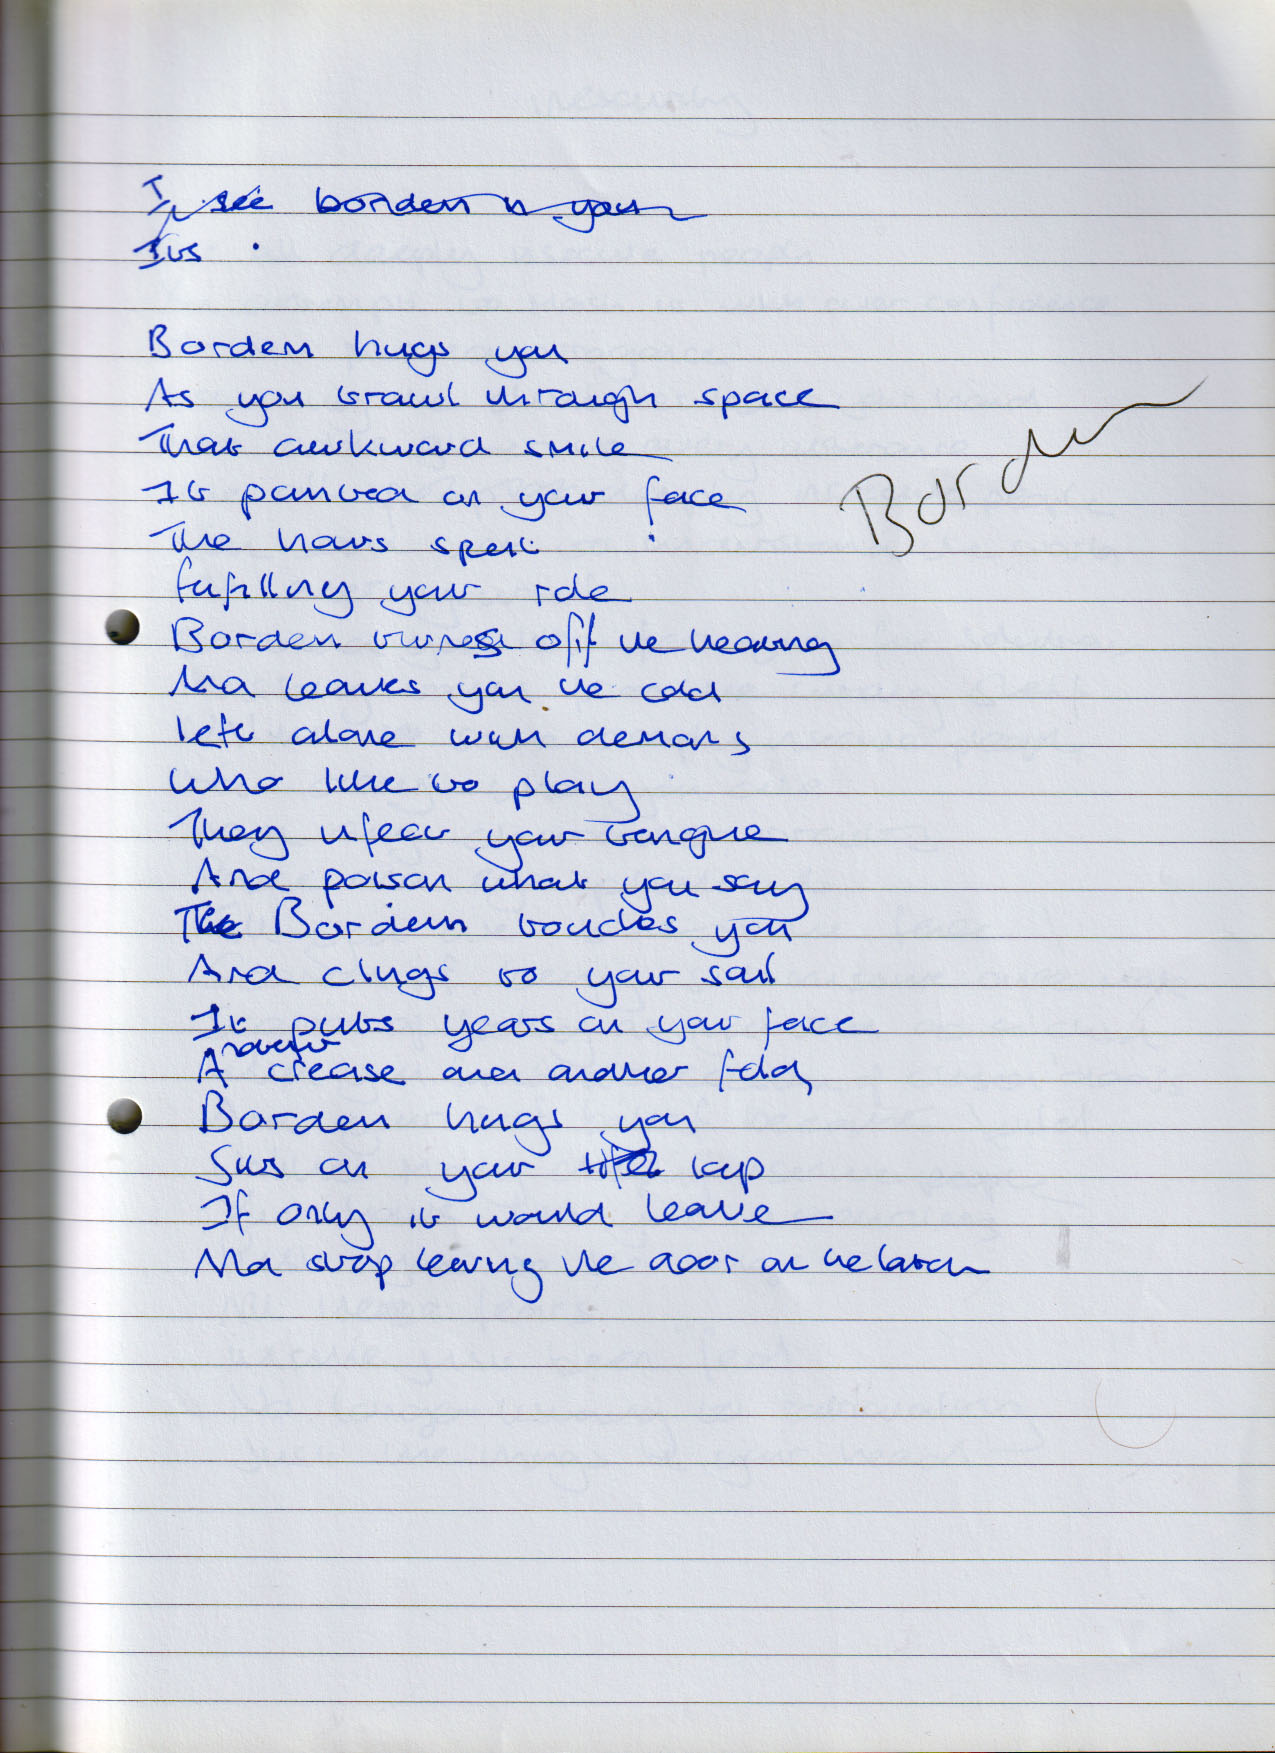 I see bordem in you
Its
Bordem hugs you
As you trawl through space
Bordem
That awkward smile
It painted on your face
The hours spent
fufilling your role
Bordem turns off the heating
And leaves you the cold
left alone with demons
Who like to play
They your tongue
And poison what you say
The Bordem touches you
And clings to your soul
It puts years on your face
Another crease and another fold
Bordem hugs you
Sits on your lap
If only it would leave
And stop leaving the door on the latch